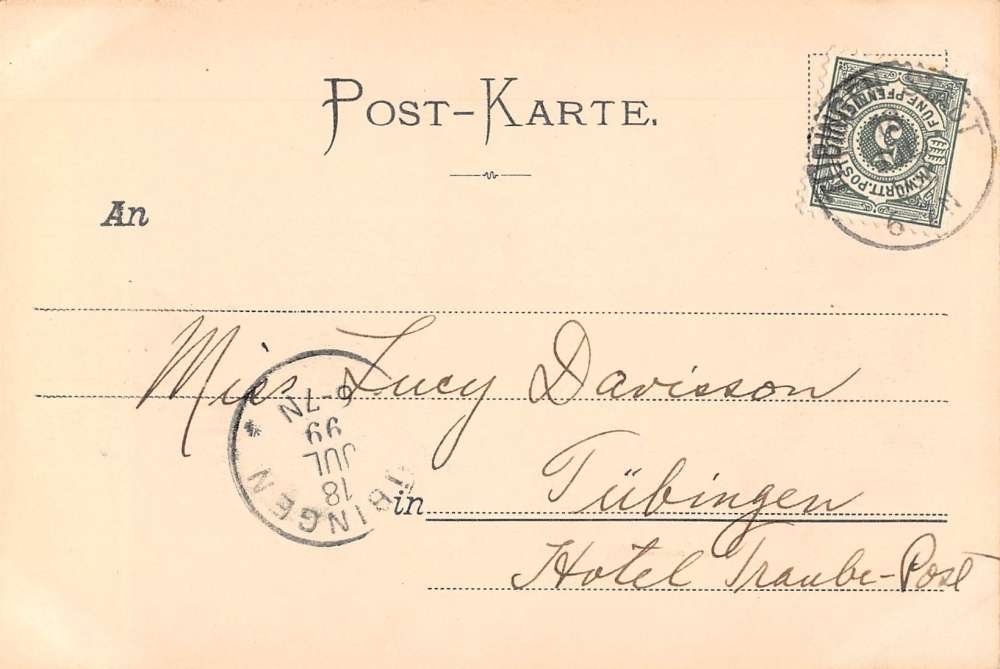 POST-KARTE.
An
Miss Lucy Davisson
in Tübingen
Hotel Traube-Post
K.WÜRTT.POST
FÜNF PFENNIG
5
6-7N
99
JUL
18